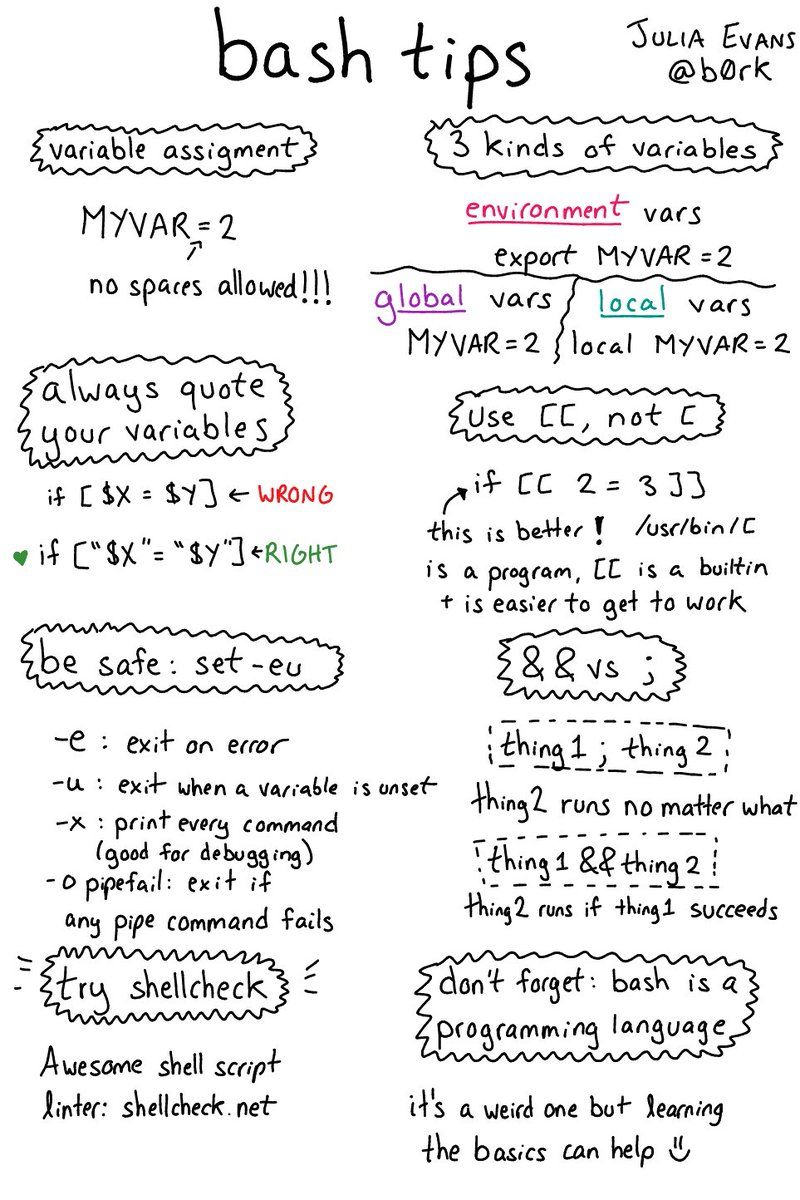 bash tips
JULIA EVANS
@b0rk
variable assigment
MYVAR=2
no spaces allowed!!!
3 kinds of variables
environment vars
export MYVAR=2
global vars
MYVAR=2
local vars
local MYVAR=2
always quote
your variables
if [ $X = $Y] ← WRONG
♥ if ["$X"= "$Y"]←RIGHT
use [[, not [
if [[ 2 = 3 ]]
this is better! /usr/bin/[
is a program, [[ is a builtin
+ is easier to get to work
be safe: set -eu
-e : exit on error
-u : exit when a variable is unset
-x : print every command
(good for debugging)
-o pipefail: exit if
any pipe command fails
&& vs ;
thing1 ; thing 2
thing2 runs no matter what
thing1 && thing 2
thing2 runs if thing1 succeeds
try shellcheck
Awesome shell script
linter: shellcheck.net
don't forget: bash is a
programming language
it's a weird one but learning
the basics can help